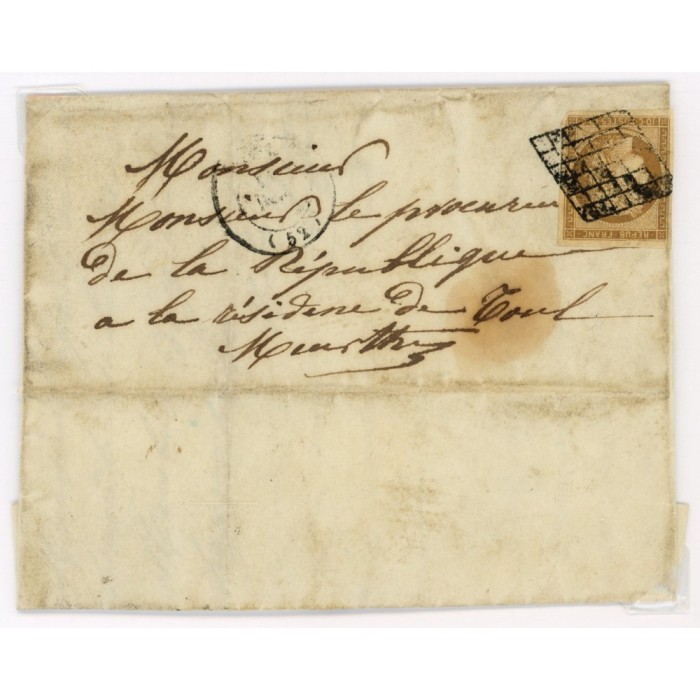 Monsieur
Monsieur le procureur
de la République
a la résidene de Toul
Meurthe
(52)
REPUB FRANC
10 C POSTES 10 C